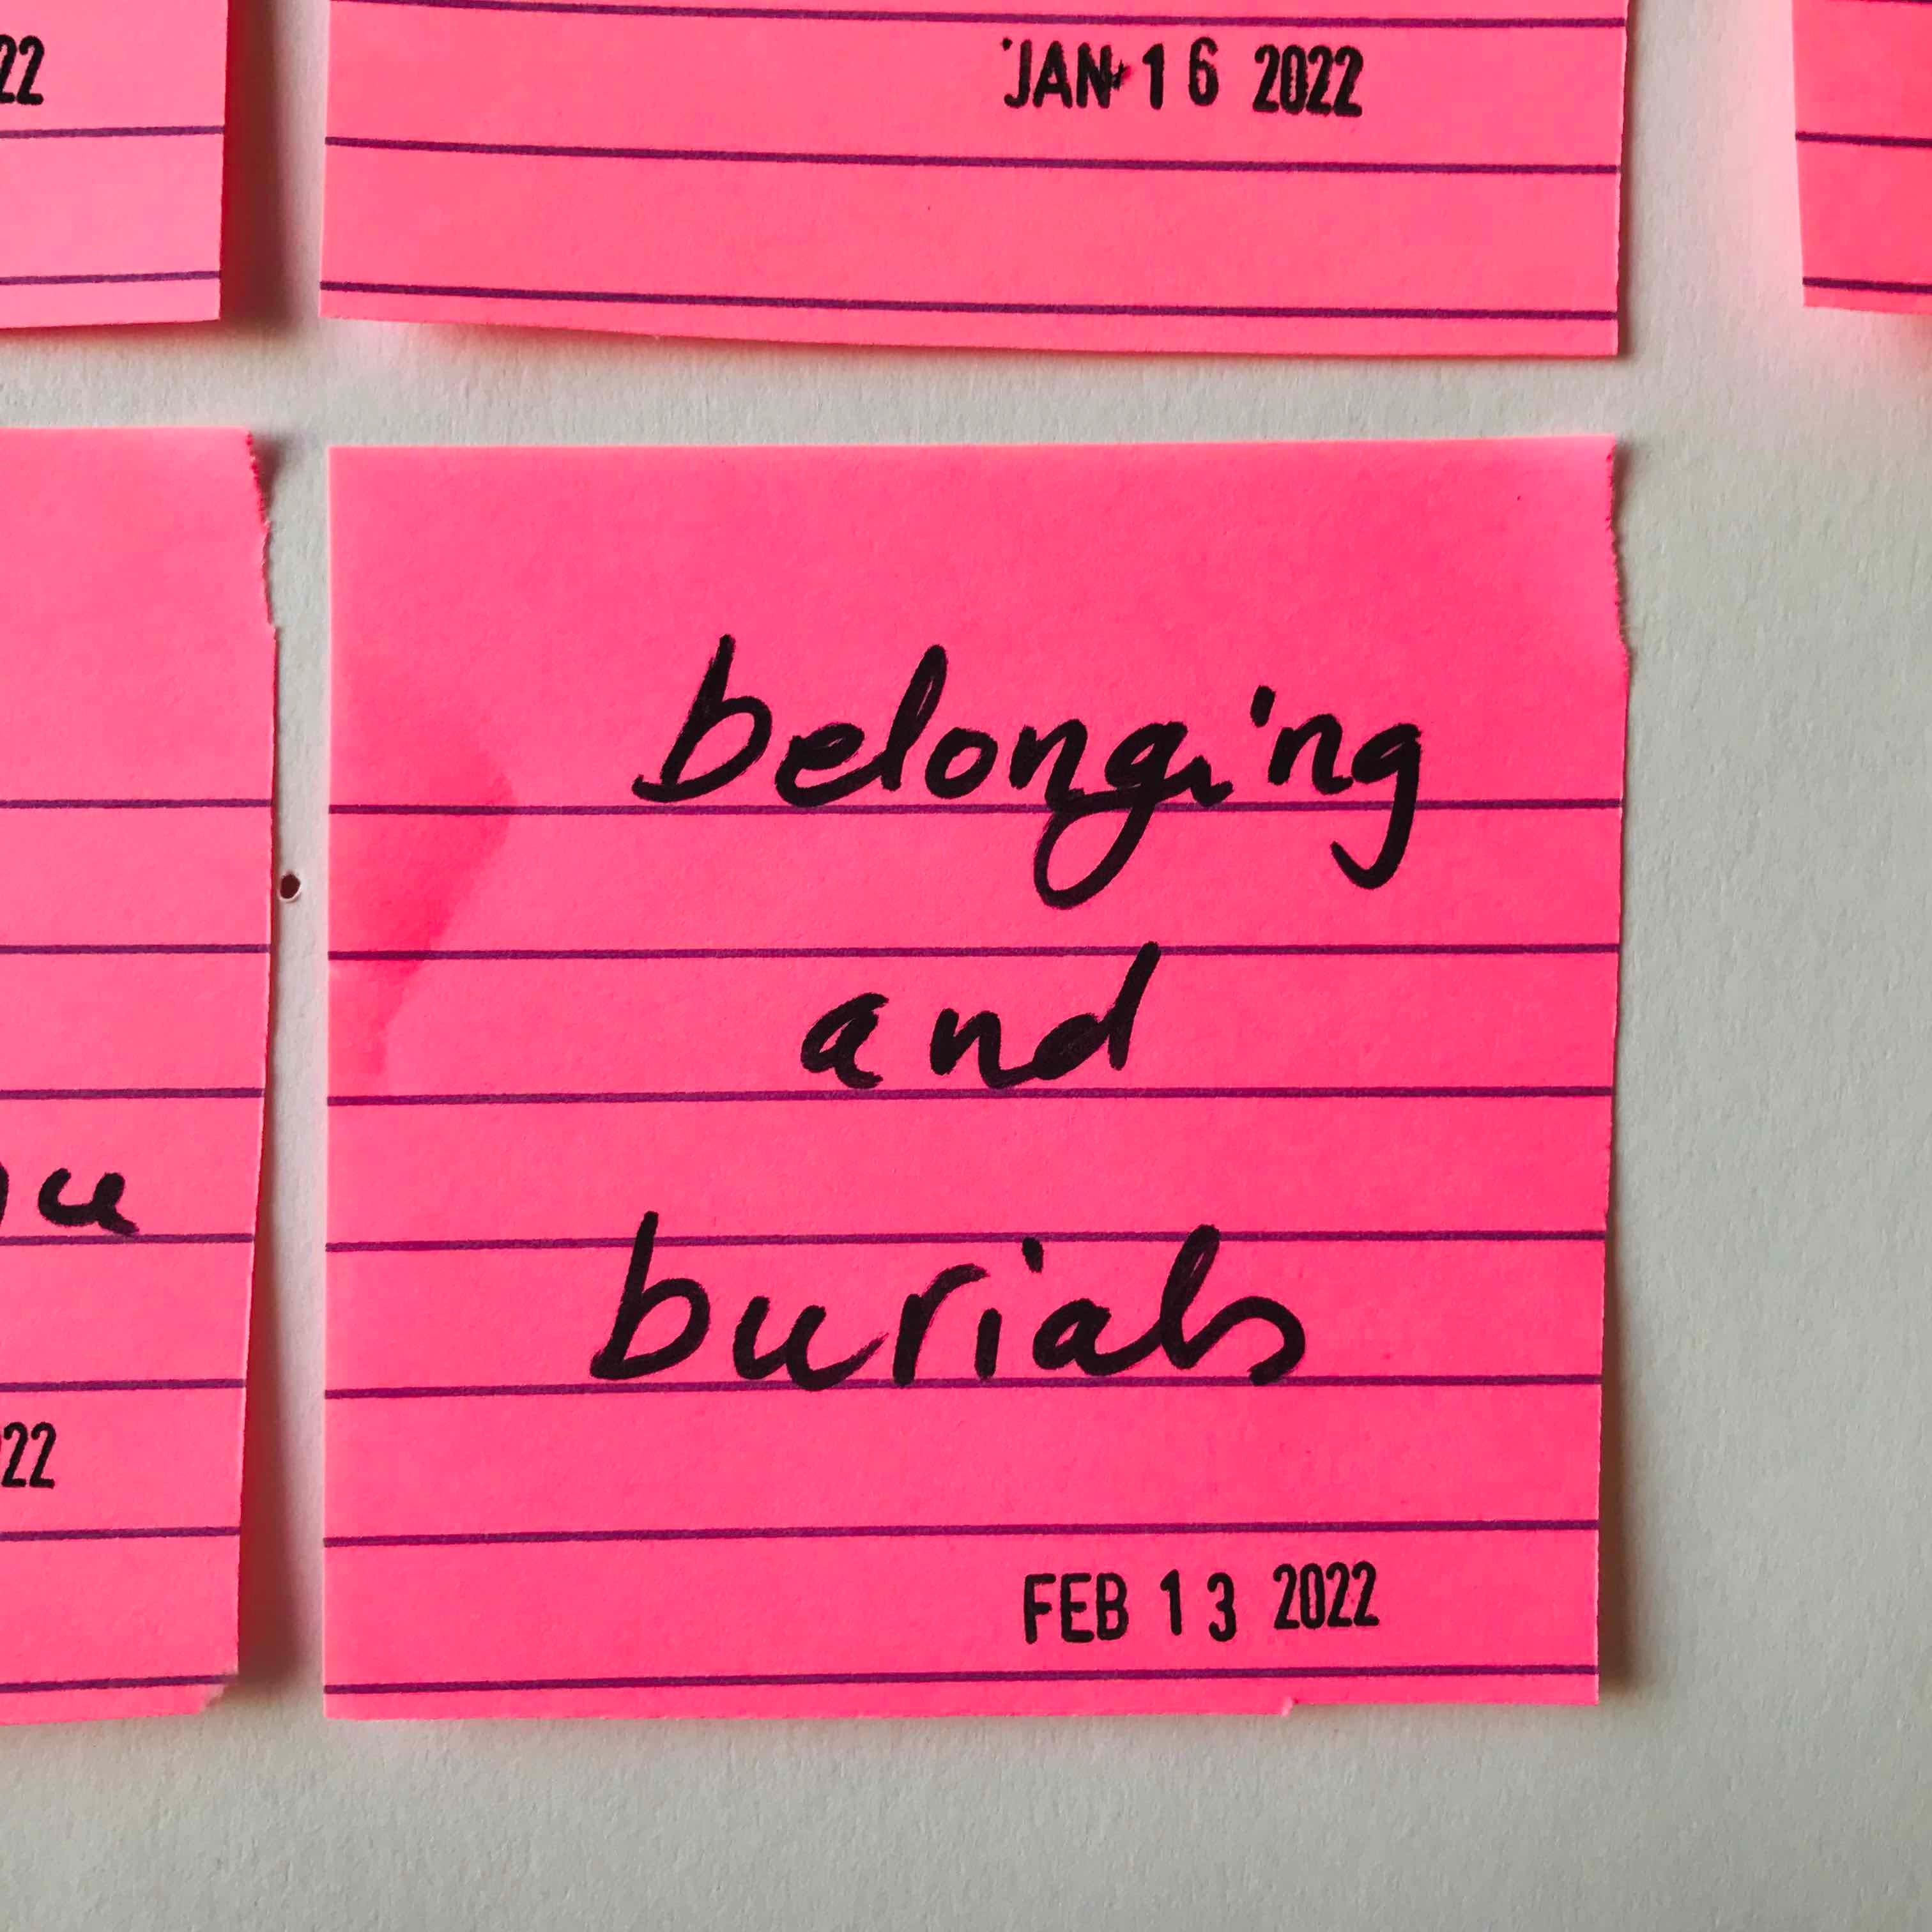 22
JAN 16 2022
belonging
and
burials
22
FEB 13 2022